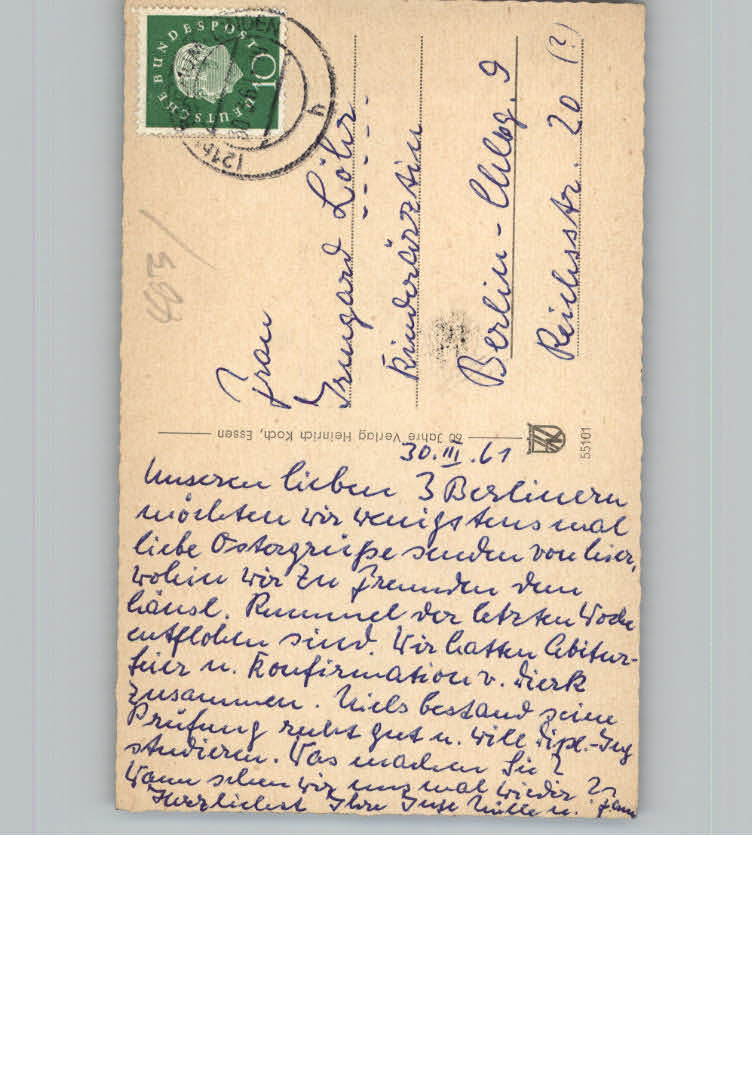 30.III.61
Unseren lieben 3 Berlinern
möchten wir wenigstens mal
liebe Ostergrüße senden von hier,
wohin wir zu Freunden dem
häusl. Rummel der letzten Woche
entflohen sind. Wir hatten Abitur-
feier u. Konfirmation v. Dierk
zusammen. Niels bestand seine
Prüfung recht gut u. will Dipl.-Ing
studieren. Was machen Sie?
Wann sehen wir uns mal wieder?
Herzlichst Ihre u.
Frau
Irmgard Löhr
Kinderärztin
Berlin-Chlbg. 9
Reichsstr. 20 (?)
60 Jahre Verlag Heinrich Koch, Essen
55101
DEUTSCHE BUNDESPOST
10
403